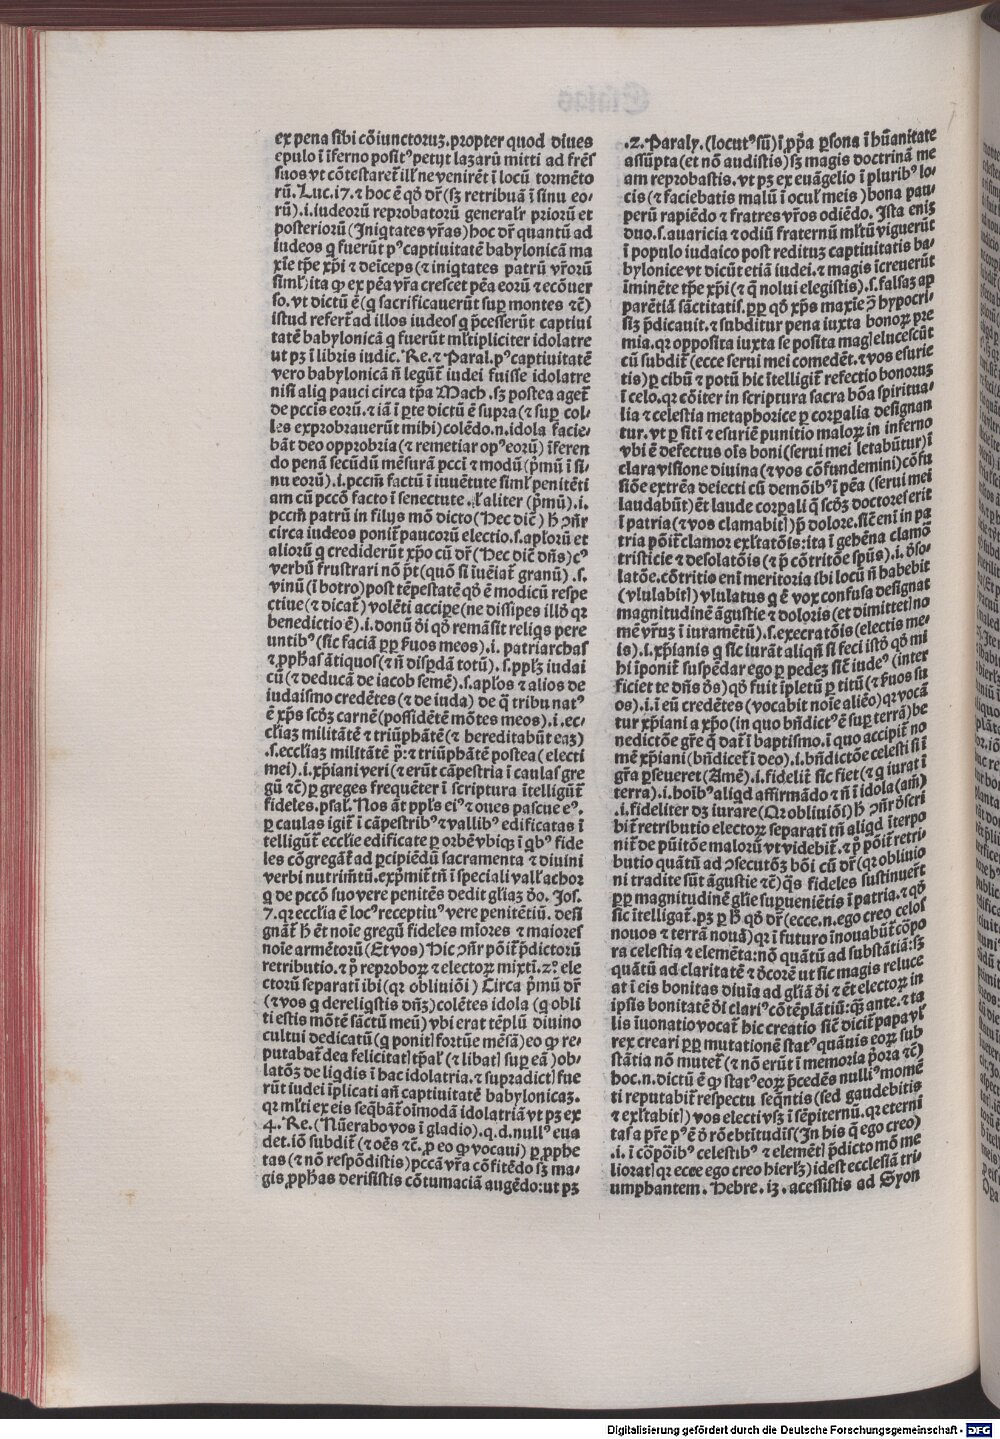 ex pena sibi cõiunctoruz.propter quod diues
epulo ĩ ĩferno posit⁹ petijt lazarũ mitti ad frẽs
suos vt cõtestaret̃ ill̃ ne venirẽt ĩ locũ tormẽto
rũ.Luc.i7.⁊ hoc ẽ qđ dr̃ (sꝫ retribuã ĩ sinu eo⸗
rũ).i.iudeorũ reprobatorũ generalr̃ priorũ et
posteriorũ (Iniq̃tates vr̃as) hoc dr̃ quantũ ad
iudeos q̃ fuerũt p⁹ captiuitatẽ babylonicã ma
xĩe tp̃e xp̃i ⁊ deĩceps (⁊ iniq̃tates patrũ vr̃orũ
siml̃) ita ꝙ ex pẽa vr̃a crescet pẽa eorũ ⁊ ecõuer
so.vt dictũ ẽ (q̃ sacrificauerũt suꝑ montes ⁊c̃)
istud refert̃ ad illos iudeos q̃ p̃cesserũt captiui
tatẽ babylonicã q̃ fuerũt ml̃tipliciter idolatre
ut pꝫ ĩ libris iudic.Re.⁊ Paral.p⁹ captiuitatẽ
vero babylonicã ñ legũt̃ iudei fuisse idolatre
nisi aliq̃ pauci circa tp̃a Mach.sꝫ postea aget̃
de pccis eorũ.⁊ iã ĩ ꝑte dictũ ẽ supra (⁊ suꝑ col⸗
les exprobrauerũt mihi) colẽdo.n.idola facie⸗
bãt deo opprobria (⁊ remetiar op⁹ eorũ) ĩferen
do penã secũdũ mẽsurã pccĩ ⁊ modũ (p̃mũ ĩ si⸗
nu eorũ).i.pccm̃ factũ ĩ iuuẽtute siml̃ penitẽti
am cũ pccõ facto ĩ senectute.l̃ aliter (p̃mũ).i.
pccm̃ patrũ in filijs mõ dicto (Hec dic̃) h̃ ↄñr
circa iudeos ponit̃ paucorũ electio.s.aplorũ et
aliorũ q̃ crediderũt xp̃o cũ dr̃ (Hec dic̃ dñs) c⁹
verbũ frustrari nõ p̃t (quõ si iuẽiat̃ granũ).s.
vinũ (ĩ botro) post tẽpestatẽ qđ ẽ modicũ respe
ctiue (⁊ dicat̃) volẽti accipe (ne dissipes illđ qr
benedictio ẽ).i.donũ đi qđ remãsit reliq̃s pere
untib⁹ (sic faciã ꝓpꝑ s̃uos meos).i.patriarchas
⁊ ꝓph̃as ãtiquos (⁊ ñ disp̃dã totũ).s.pplꝫ iudai
cũ (⁊ deducã de iacob semẽ).s.apl̃os ⁊ alios de
iudaismo credẽtes (⁊ de iuda) de q̃ tribu nat⁹
ẽ xp̃s scđꝫ carnẽ (possidẽtẽ mõtes meos).i.ec⸗
cl̃iaꝫ militãtẽ ⁊ triũphãtẽ (⁊ hereditabũt eaꝫ)
.s.eccliaꝫ militãtẽ p̃: ⁊ triũphãtẽ postea (electi
mei).i.xp̃iani veri (⁊ erũt cãpestria ĩ caulas gre
gũ ⁊c̃) ꝑ greges frequẽter ĩ scriptura ĩtelligũt̃
fideles.psal̃.Nos ãt ppl̃s ei⁹ ⁊ oues pascue e⁹.
ꝑ caulas igit̃ ĩ cãpestrib⁹ ⁊ vallib⁹ edificatas ĩ
telligũt̃ eccl̃ie edificate ꝑ orbẽ vbiqꝫ ĩ q̃b⁹ fide
les cõgregãt̃ ad ꝑcipiẽdũ sacramenta ⁊ diuini
verbi nutrim̃tũ.exp̃mit̃ tñ ĩ speciali vall̃ achor
q̃ de pccõ suo vere penitẽs dedit gl̃iaꝫ đo. Jos.
7.qr ecclia ẽ loc⁹ receptiu⁹ vere penitẽtiũ. desi
gnãt̃ h̃ ẽt noĩe gregũ fideles mĩores ⁊ maiores
noĩe armẽtorũ (Et vos) Hic ↄñr põit̃ p̃dictorũ
retributio.⁊ p̃ reproboꝝ ⁊ electoꝝ mixtĩ.2º ele
ctorũ separati ibi (qr obliuiõi) Circa p̃mũ dr̃
(⁊ vos q̃ dereliq̃stis dñꝫ) colẽtes idola (q̃ obli
ti estis mõtẽ sãctũ meũ) vbi erat tẽplũ diuino
cultui dedicatũ (q̃ ponit̃ fortũe mẽsã) eo ꝙ re⸗
putabat̃ dea felicitat̃ tp̃al̃ (⁊ libat̃ suꝑ eã) ob⸗
latõꝫ de liq̃dis ĩ hac idolatria.⁊ supradict̃ fue
rũt iudei ĩplicati añ captiuitatẽ babylonicaꝫ.
qr ml̃ti ex eis seq̃bãt̃ oĩmodã idolatriã vt pꝫ ex
4.Re.(Nũerabo vos ĩ gladio).q.d.null⁹ eua
det.iõ subdit̃ (⁊ oẽs ⁊c̃.ꝓ eo ꝙ vocaui) ꝑ ꝓphe
tas (⁊ nõ respõdistis) pccã vr̃a cõfitẽdo sꝫ ma⸗
gis ꝓph̃as derisistis cõtumaciã augẽdo: ut pꝫ
.2.Paraly.(locut⁹ sũ) ĩ ꝓp̃a ꝑsona ĩ hũanitate
assũpta (et nõ audistis) sꝫ magis doctrinã me
am reprobastis.vt pꝫ ex euãgelio ĩ plurib⁹ lo⸗
cis (⁊ faciebatis malũ ĩ ocul̃ meis) bona pau⸗
perũ rapiẽdo ⁊ fratres vr̃os odiẽdo. Ista eniꝫ
duo.s.auaricia ⁊ odiũ fraternũ ml̃tũ viguerũt
ĩ populo iudaico post reditus captiuitatis ba⸗
bylonice vt dicũt etiã iudei.⁊ magis ĩcreuerũt
ĩminẽte tp̃e xp̃i (⁊ q̃ nolui elegistis).s.falsaꝫ ap
parẽtiã sãctitatis.ꝓpꝑ qđ xp̃s maxĩe ꝯ̃ hypocri⸗
siꝫ p̃dicauit.⁊ subditur pena iuxta bonoꝝ pre
mia.qr opposita iuxta se posita mag̃ elucescũt
cũ subdit̃ (ecce serui mei comedẽt.⁊ vos esurie
tis) ꝑ cibũ ⁊ potũ hic ĩtelligit̃ refectio bonoruꝫ
ĩ celo.qr cõiter in scriptura sacra bõa spiritua⸗
lia ⁊ celestia metaphorice ꝑ corꝑalia designan
tur.vt ꝑ sitĩ ⁊ esuriẽ punitio maloꝝ in inferno
vbi ẽ defectus ois boni (serui mei letabũtur) ĩ
clara visione diuina (⁊ vos cõfundemini) cõfu
siõe extrẽa deiecti cũ demõib⁹ ĩ pẽa (serui mei
laudabũt) ẽt laude corꝑali q̃ scđꝫ doctores erit
ĩ patria (⁊ vos clamabit̃) p̃ dolore.sic̃ enĩ in pa
tria põit̃ clamor exl̃tatõis: ita ĩ gehẽna clamõ
tristicie ⁊ desolatõis (⁊ p̃ cõtritõe sp̃us).i.đso⸗
latõe.cõtritis enĩ meritoria ibi locũ ñ habebit
(vlulabit̃) vlulatus q̃ ẽ vox confusa designat
magnitudinẽ ãgustie ⁊ doloris (et dimittet̃ no
mẽ vr̃uꝫ ĩ iuramẽtũ).s.execratõis (electis me⸗
is).i.xp̃ianis q̃ sic iurãt aliqñ si feci istđ qđ mi
hi ĩponit̃ suspẽdar ego ꝑ pedeꝫ sic̃ iude⁹ (inter
ficiet te dñs đs) qđ fuit ĩpletũ ꝑ titũ (⁊ s̃uos su
os).i.ĩ eũ credẽtes (vocabit noĩe aliẽo) qr vocã
tur xp̃iani a xp̃o (in quo bñdict⁹ ẽ suꝑ terrã) be
nedictõe gr̃e q̃ dat̃ ĩ baptismo.ĩ quo accipit̃ no
mẽ xp̃iani (bñdicet̃ ĩ deo).i.bñdictõe celesti si ĩ
gr̃a ꝑseueret (Amẽ).i.fidelit̃ sic fiet (⁊ q̃ iurat ĩ
terra).i.hoĩb⁹ aliq̃d affirmãdo ⁊ ñ ĩ idola (am̃)
.i.fideliter dꝫ iurare (Qr obliuiõi) h̃ ↄñr đscri
bit̃ retributio electoꝝ separati tñ aliq̃d ĩterpo
nit̃ de pũitõe malorũ vt videbit̃.⁊ p̃ põit̃ retri⸗
butio quãtũ ad ↄsecutõꝫ bõi cũ dr̃ (qr obliuio
ni tradite sũt ãgustie ⁊c̃) q̃s fideles sustinuer̃t
ꝓpꝑ magnitudinẽ gl̃ie suꝑueniẽtis ĩ patria.⁊ qđ
sic ĩtelligat̃.pꝫ ꝑ h̃ qđ dr̃ (ecce.n.ego creo celos
nouos ⁊ terrã nouã) qr ĩ futuro ĩnouabũt̃ cõpo
ra celestia ⁊ elemẽta: nõ quãtũ ad substãtiã: sꝫ
quãtũ ad claritatẽ ⁊ đcorẽ ut sic magis reluce
at ĩ eis bonitas diuĩa ad gl̃iã đi ⁊ ẽt electoꝝ in
ipsiis bonitatẽ đi clari⁹ cõtẽplãtiũ: qꝫ ante.⁊ ta
lis ĩuonatio vocat̃ hic creatio sic̃ dicit̃ papa vl̃
rex creari ꝓpꝑ mutationẽ stat⁹ quãuis eoꝝ sub
stãtia nõ mutet̃ (⁊ nõ erũt ĩ memoria p̃ora ⁊c̃)
hoc.n.dictũ ẽ ꝙ stat⁹ eoꝝ p̃cedẽs nulli⁹ momẽ
ti reputabit̃ respectu seq̃ntis (sed gaudebitis
⁊ exl̃tabit̃) vos electi vsꝫ ĩ sẽpiternũ.qr eterni
tas a pr̃e p⁹ ẽ đ rõebtitudĩs (In his q̃ ego creo)
.i.ĩ cõpõib⁹ celestib⁹ ⁊ elemẽt̃ p̃dicto mõ me
liorat̃ qr ecce ego creo hierl̃ꝫ) idest ecclesiã tri⸗
umphantem. Hebre.i2.acessistis ad Syon
Digitalisierung gefördert durch die Deutsche Forschungsgemeinschaft - DFG